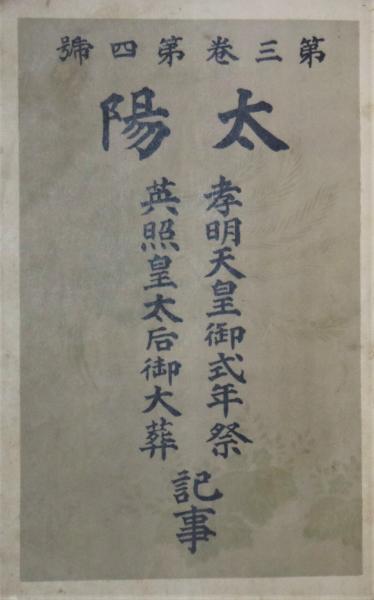 第三巻第四號
太陽
孝明天皇御式年祭
英照皇太后御大葬
記事